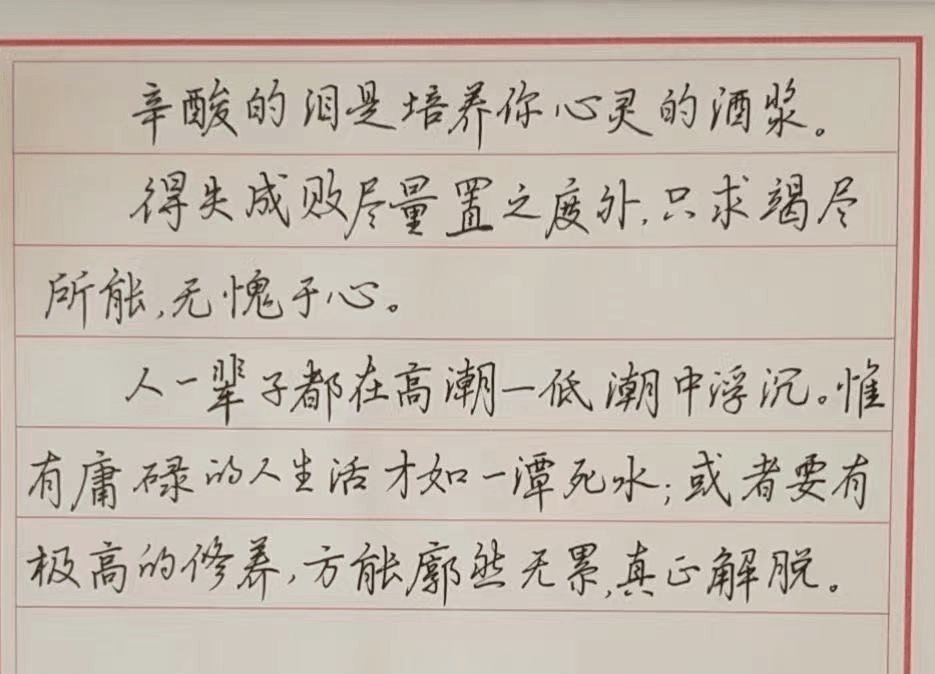 辛酸的泪是培养你心灵的酒浆。
得失成败尽量置之度外，只求竭尽
所能，无愧于心。
人一辈子都在高潮—低潮中浮沉。惟
有庸碌的人生活才如一潭死水；或者要有
极高的修养，方能廓然无累，真正解脱。